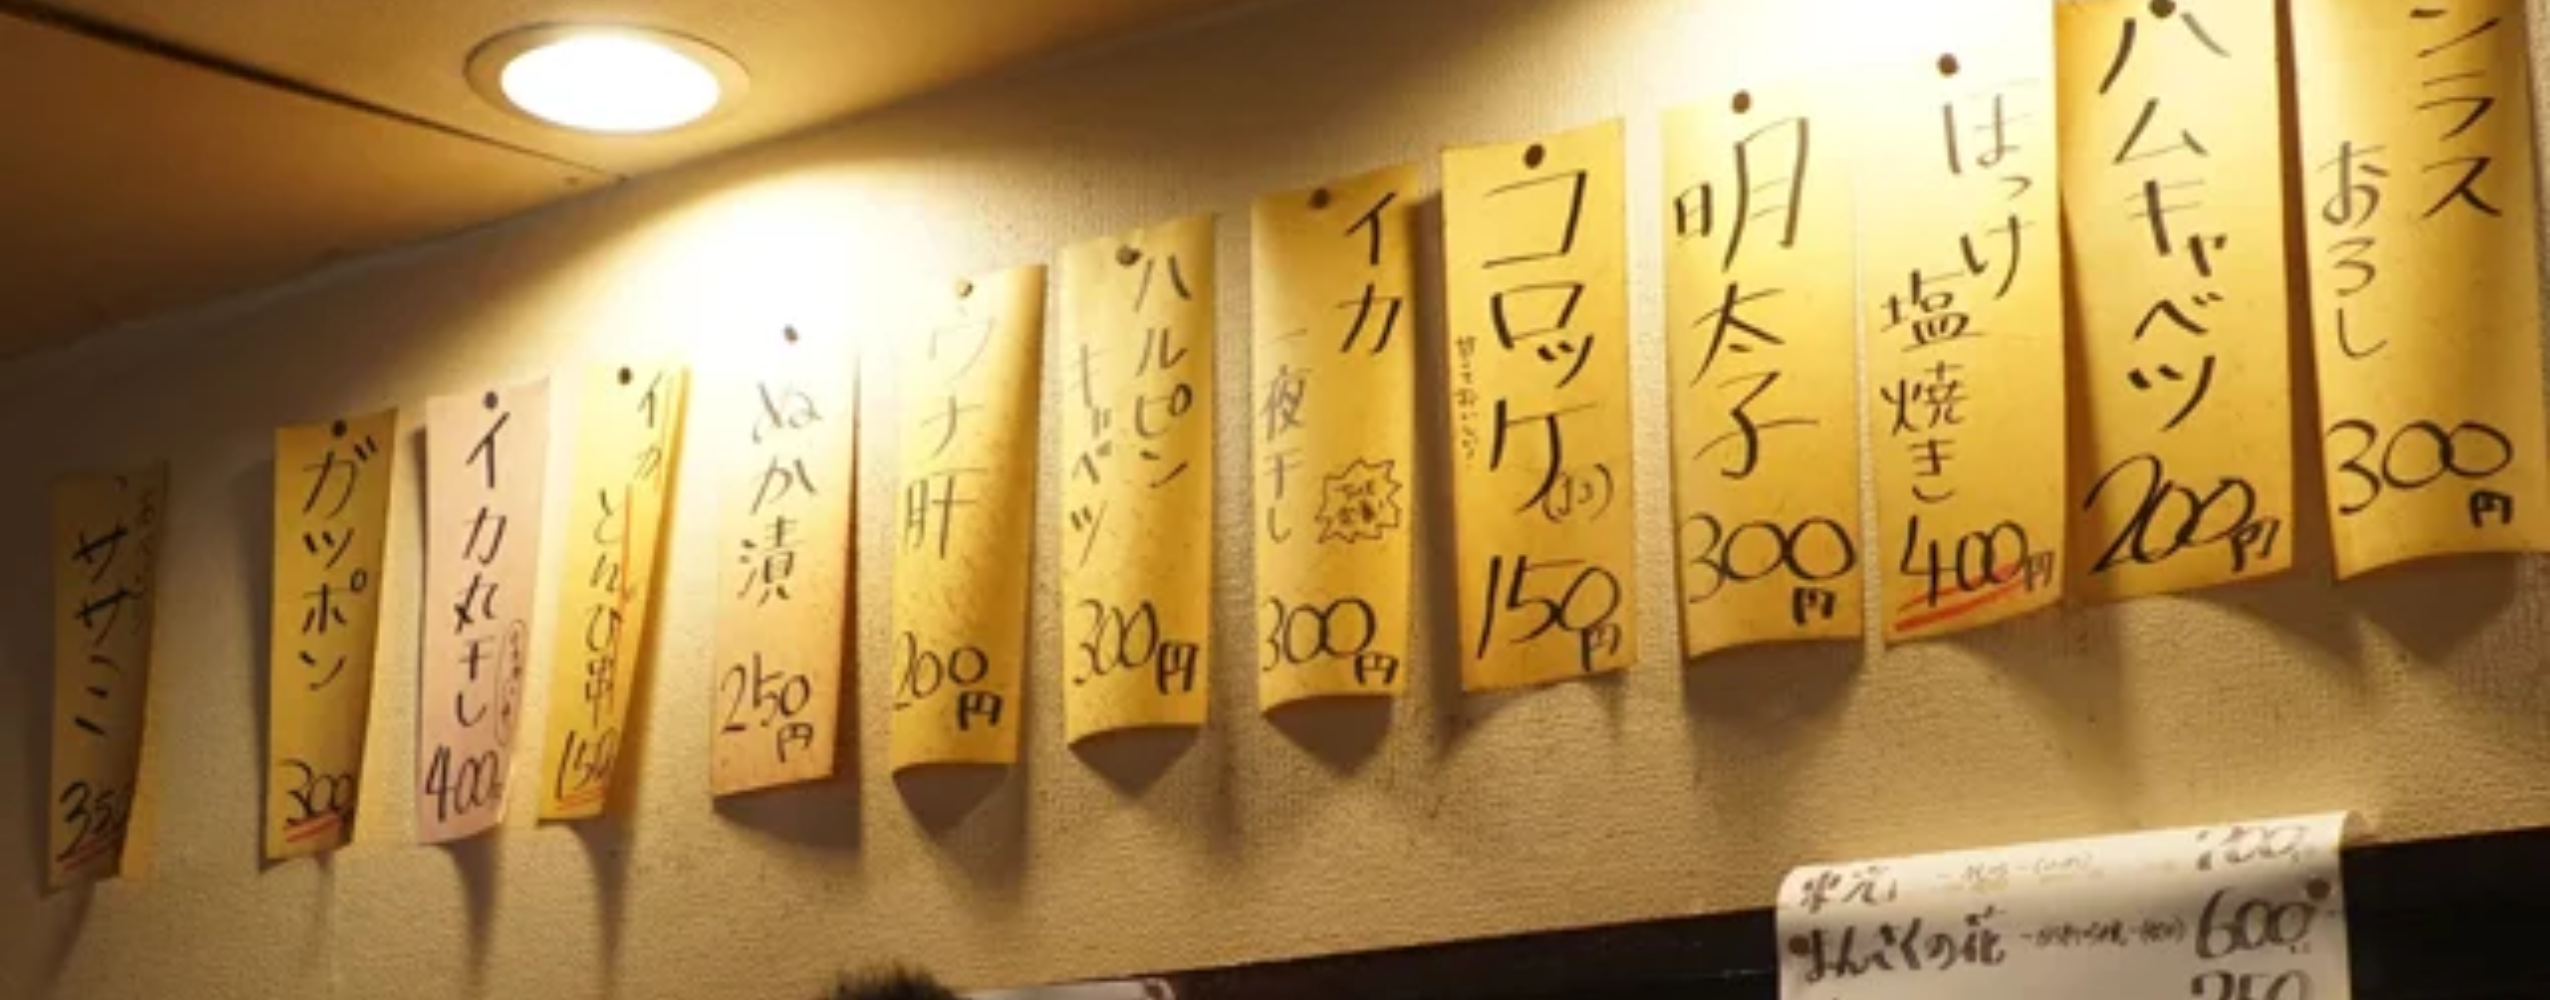 ンラス
おろし
300円
ハムキャベツ
200円
ほっけ
塩焼き
400円
明太子
300円
コロッケ(1コ)
150円
イカ
一夜干し
300円
ハルピン
キャベツ
300円
ウナ肝
200円
ぬか漬
250円
イカ
とんび串
150
イカ丸干し
400
ガツポン
300
ササミ
350
まんさくの花
600